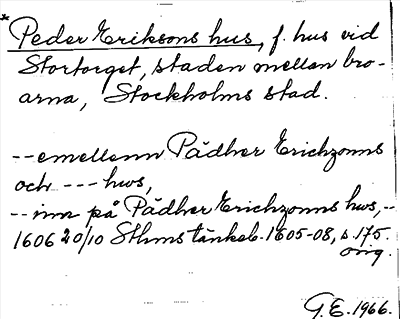 * Peder Eriksons hus, f. hus vid
Stortorget, staden mellan bro-
arna, Stockholms stad.
--emellenn Pädher Erichzonns
och --- hws,
-- inn på Pädher Erichzonns hws, --
1606 20/10 Sthms tänkeb. 1605-08, s. 175.
orig.
G.E. 1966.